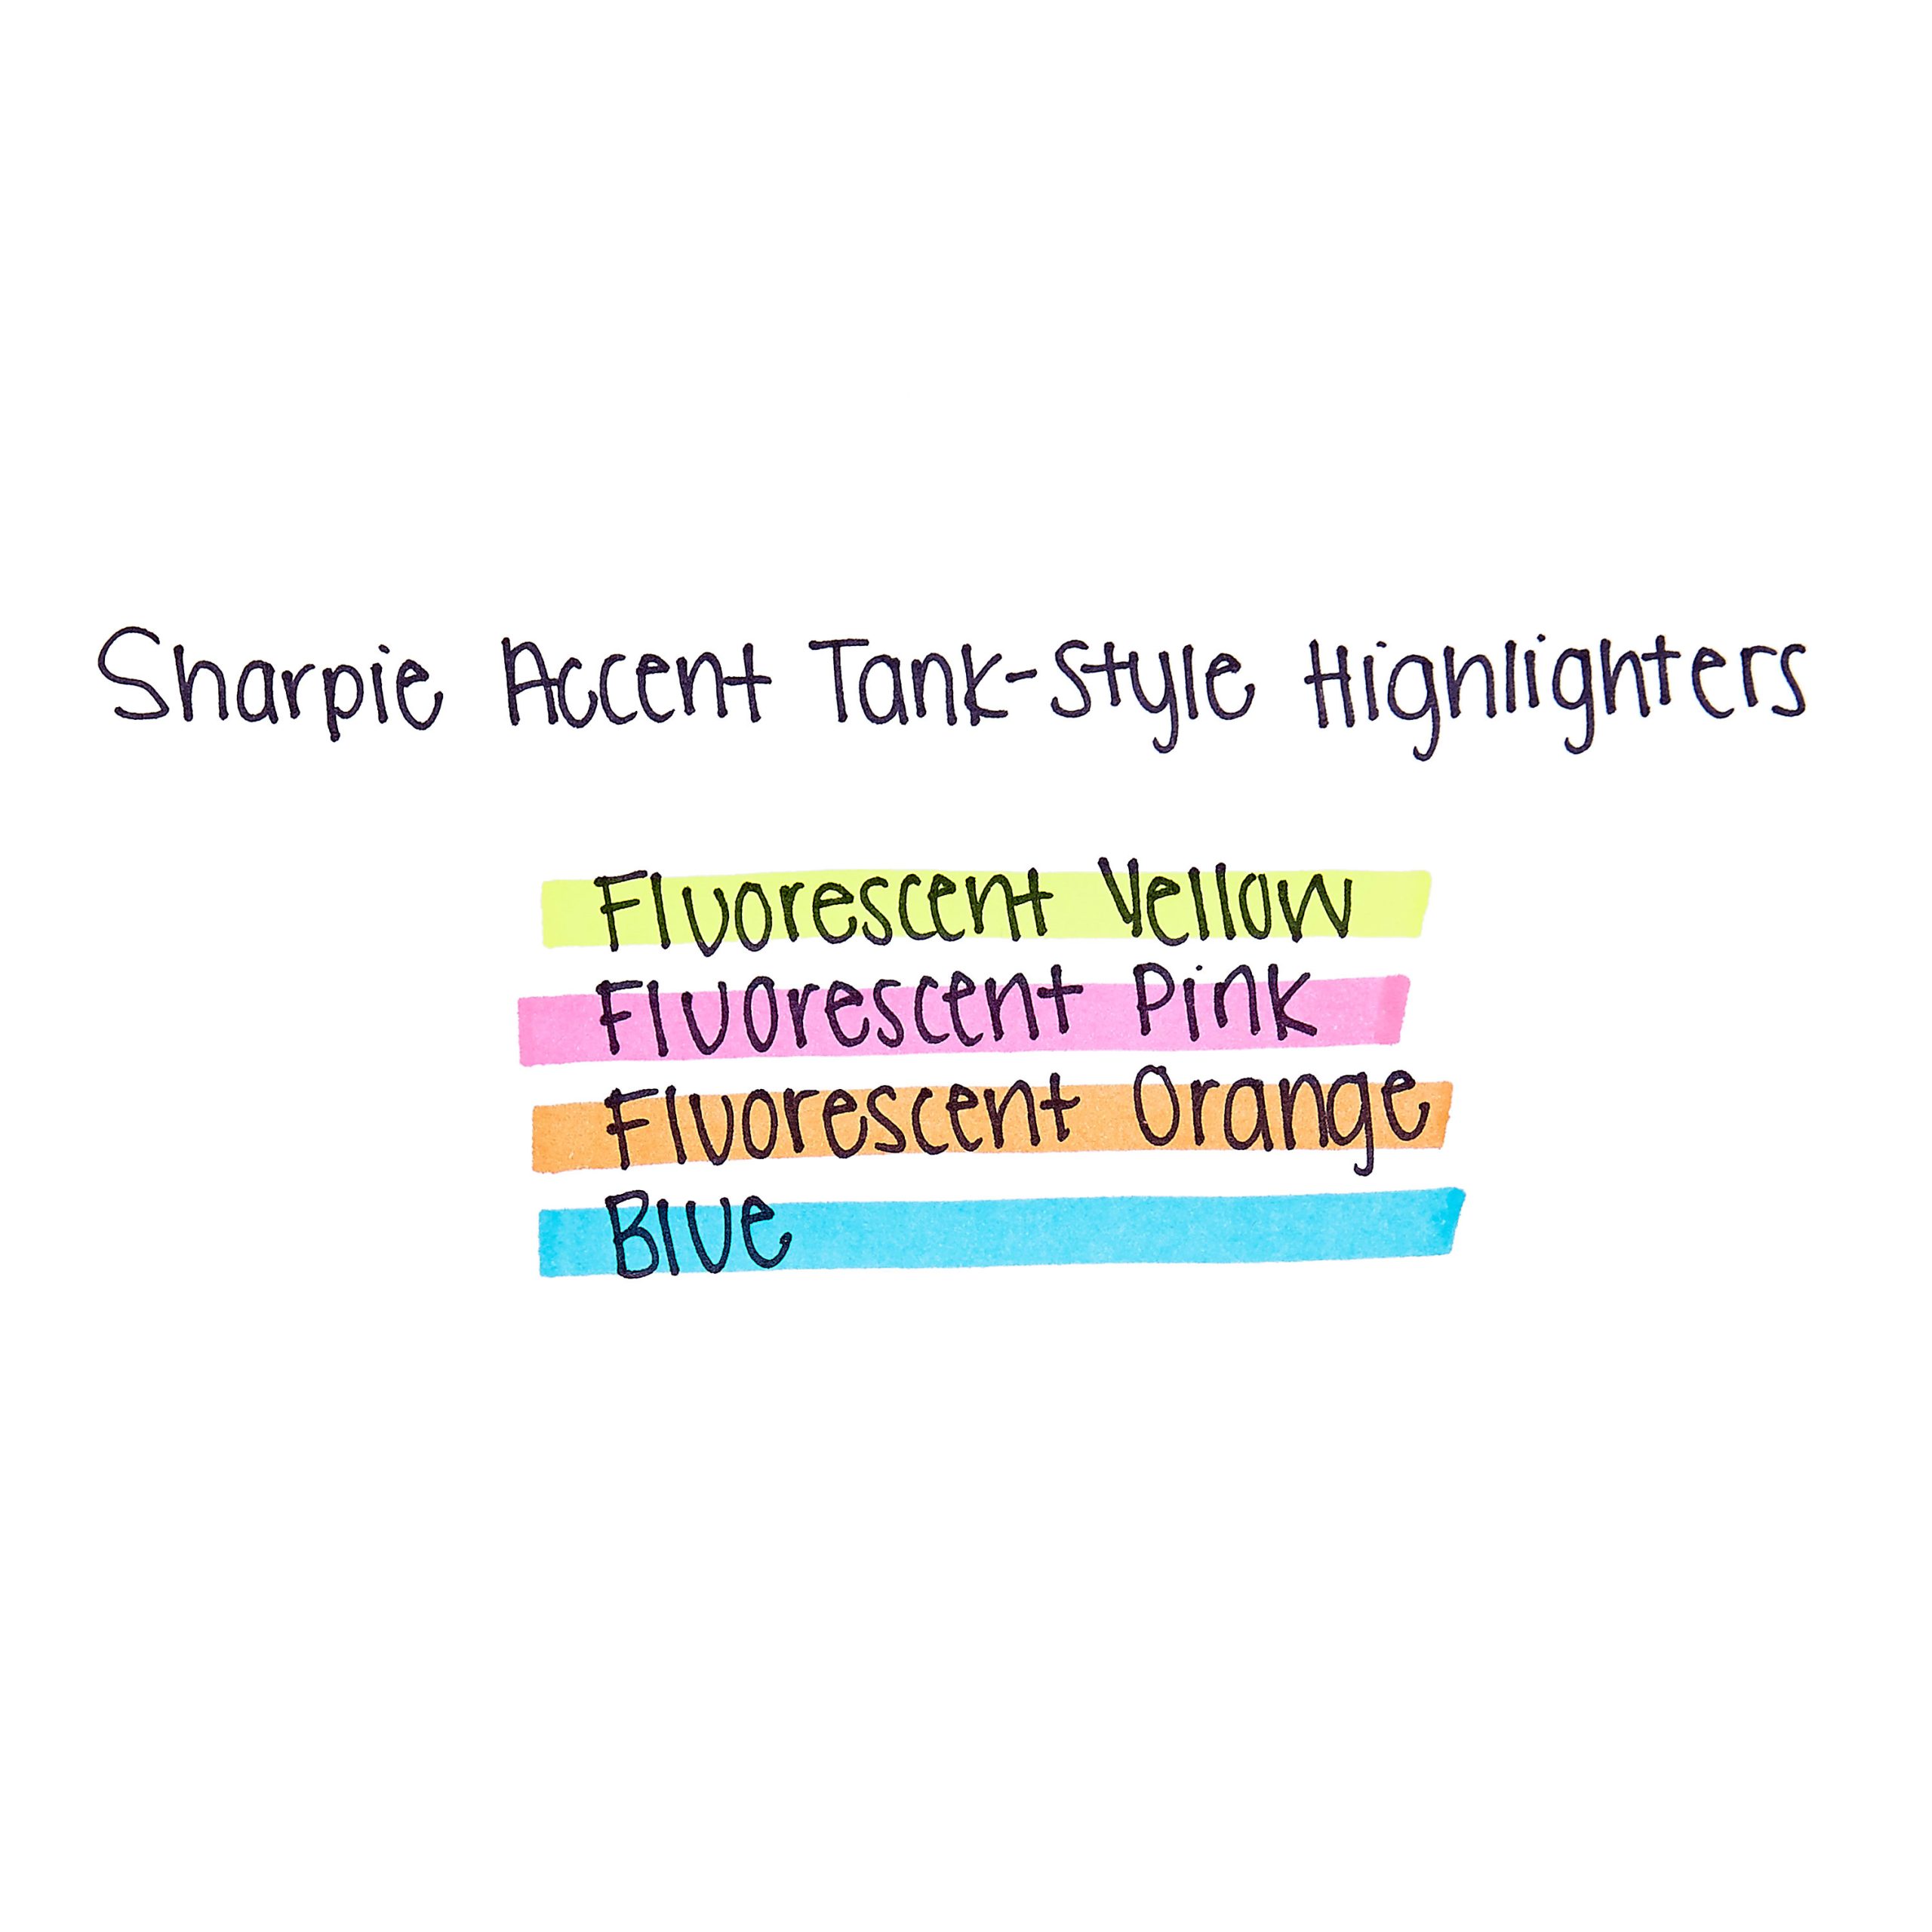 Sharpie Accent Tank-Style Highlighters
Fluorescent Yellow
Fluorescent Pink
Fluorescent Orange
Blue